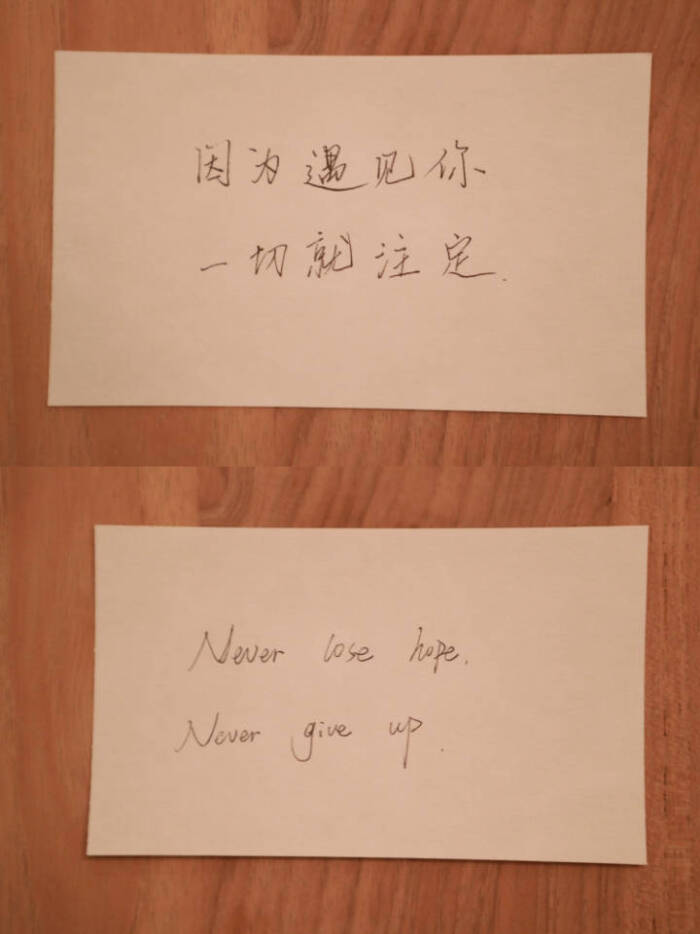 因为遇见你
一切就注定.
Never lose hope.
Never give up.